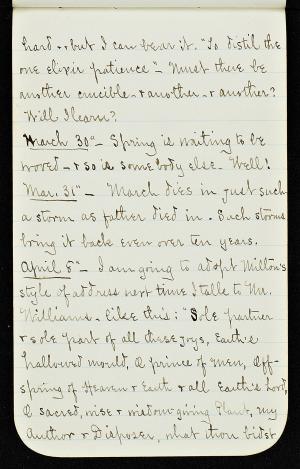 hard - - but I can bear it. "To distil the
one elixir patience" - Must there be
another crucible - & another - & another?
Will I learn?
March 30" - Spring is waiting to be
wooed - & so is somebody else. Well!
Mar. 31" - March dies in just such
a storm as father died in. Such storms
bring it back even over ten years.
April 8" - I am going to adopt Milton's
style of address next time I talk to Mr.
Williams. like this: "Sole partner
& sole part of all these joys, Earth's
hallowed mould, O prince of men, Off-
spring of Heaven & Earth & all Earth's Lord,
O sacred, wise & wisdom-giving Plant, my
Author & Disposer, what thou bidst